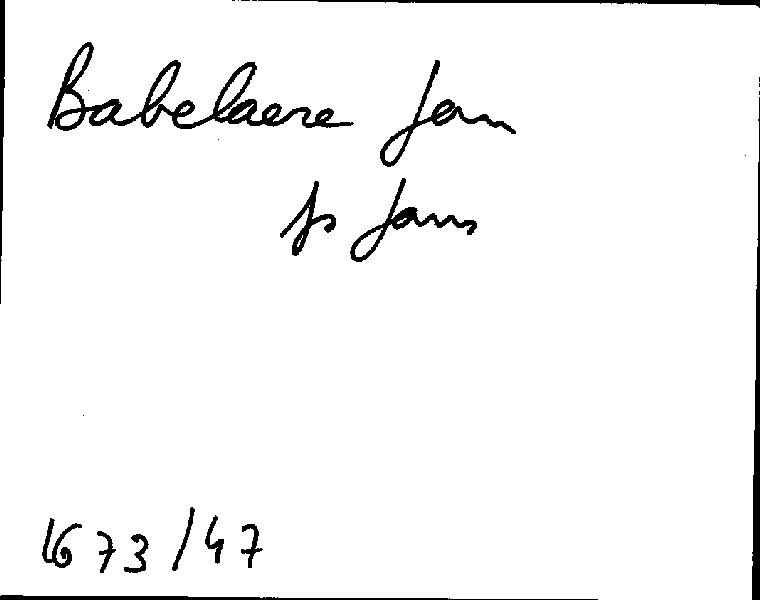 Babelaere Jan
fs Jans
1673/47